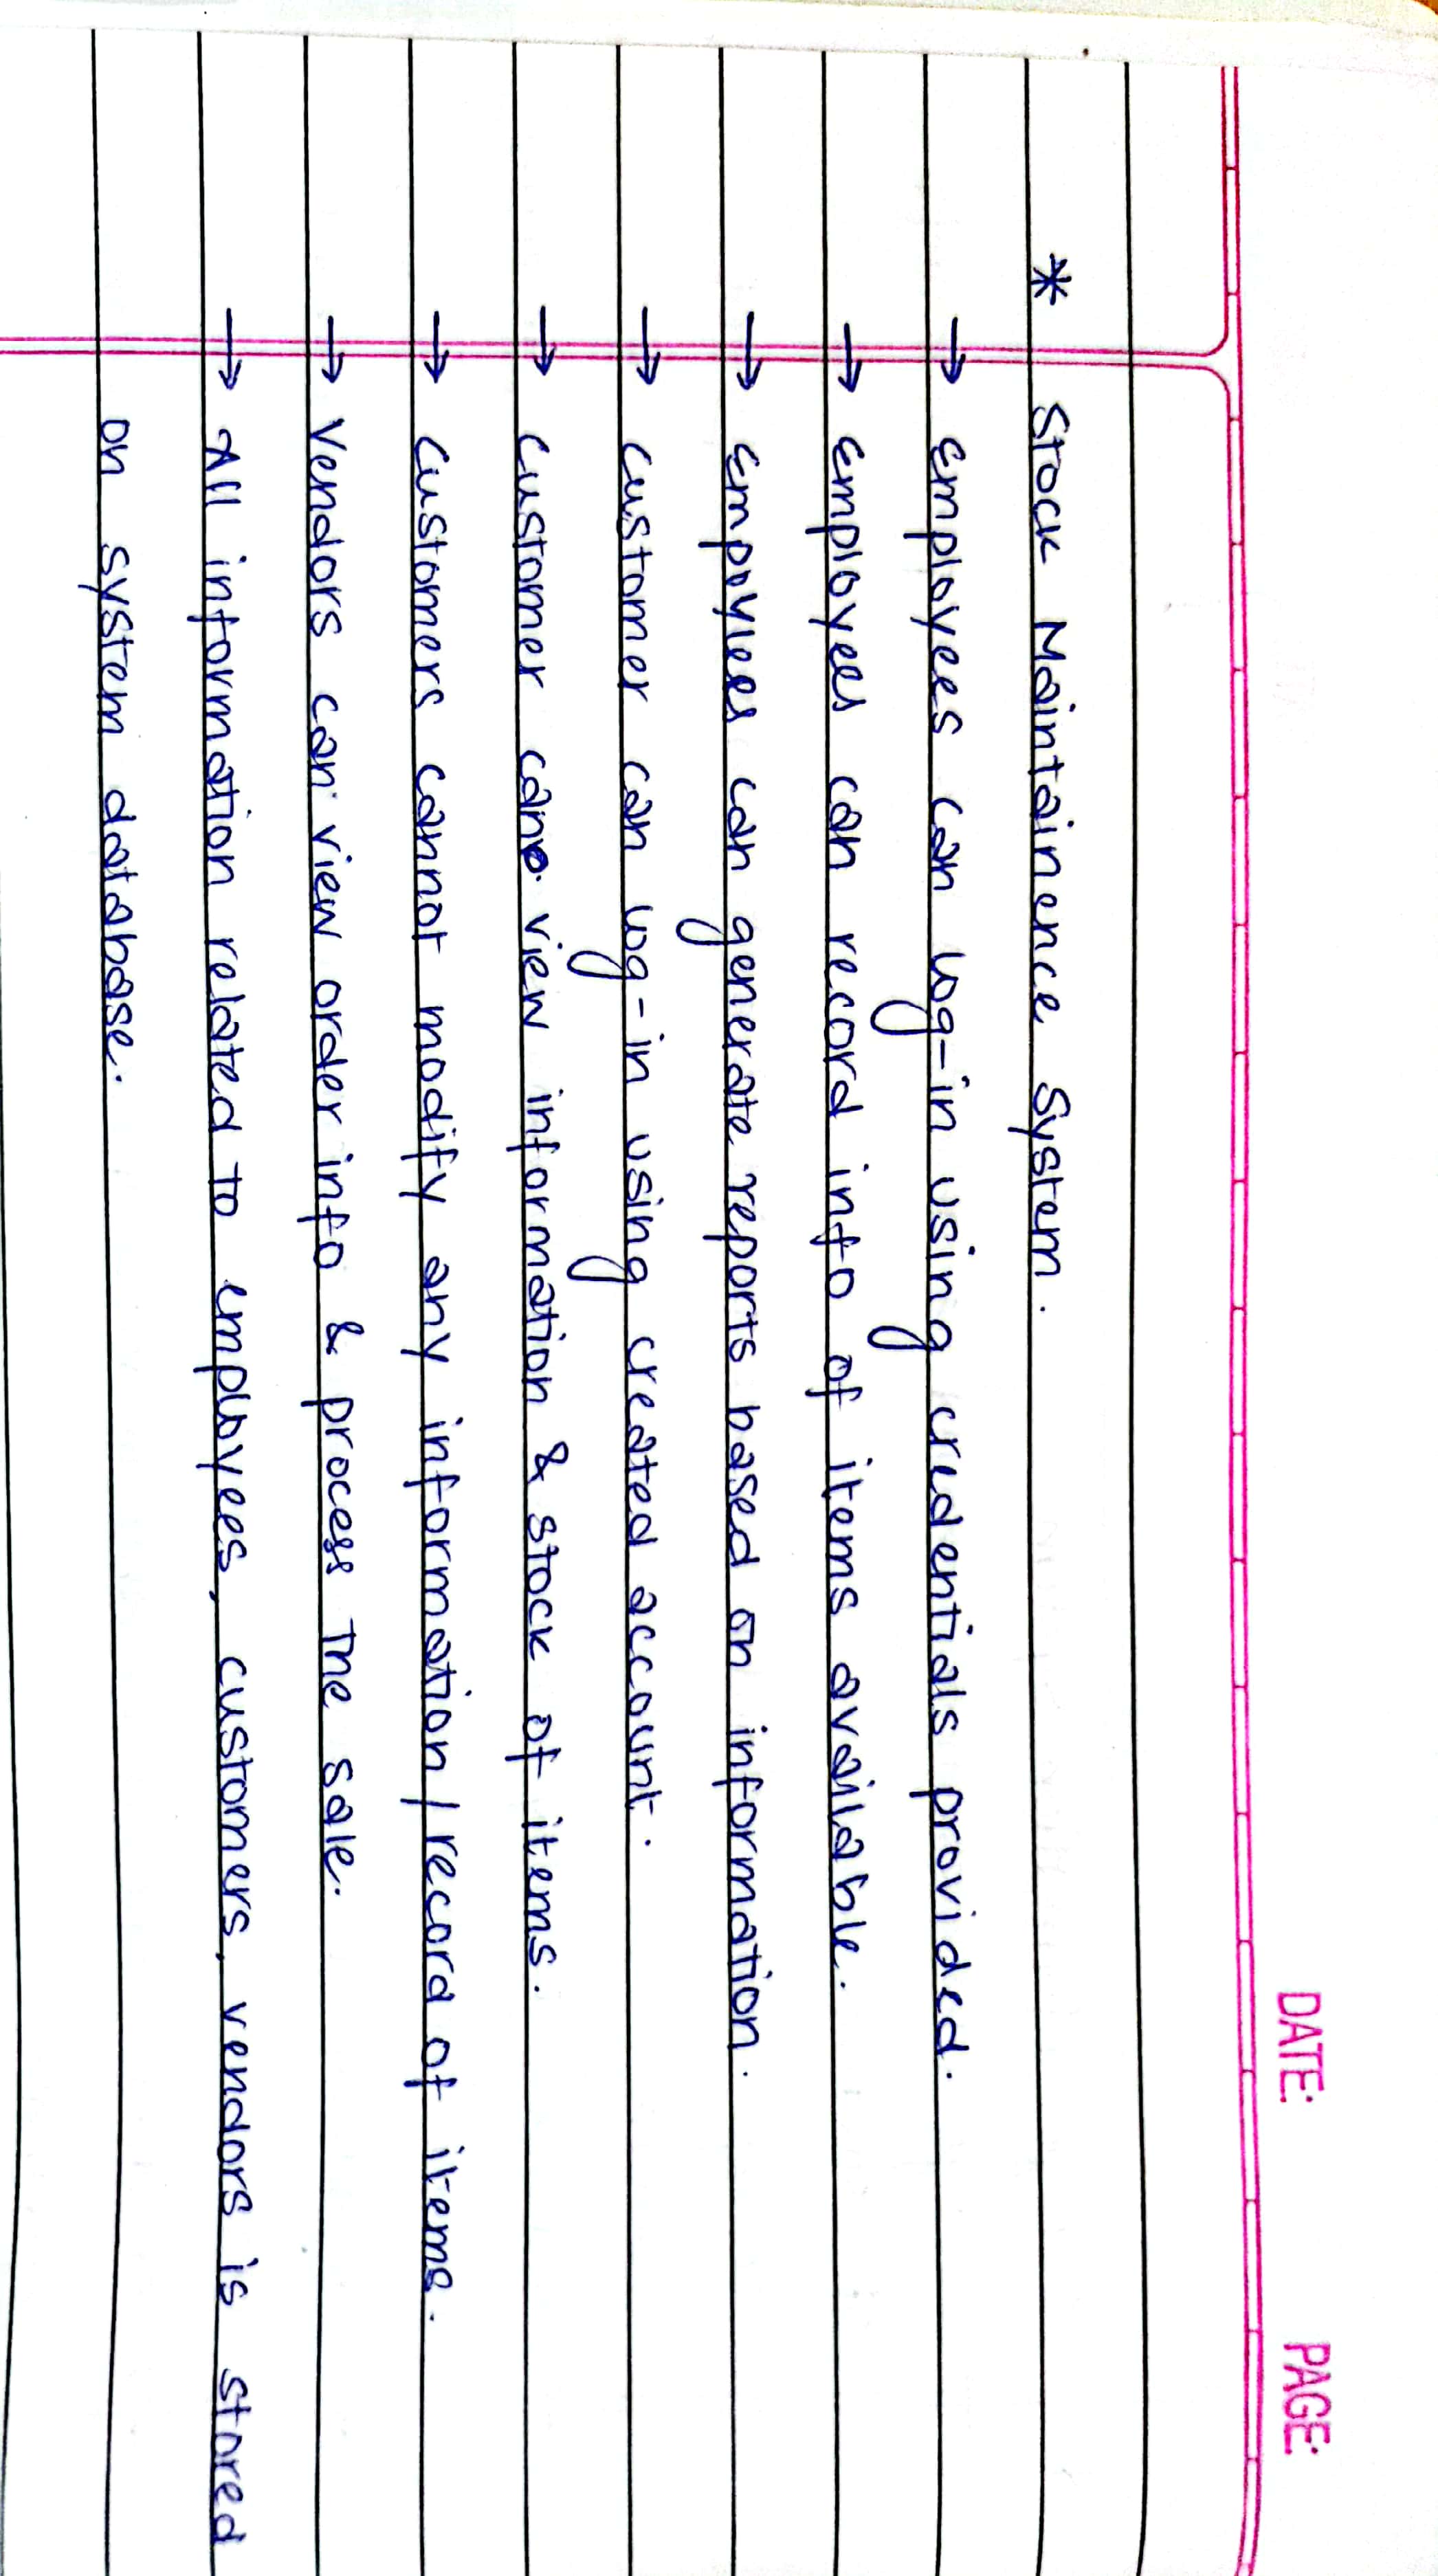 DATE: PAGE:
* Stock Maintainence System.
→ Employees can log-in using credentials provided.
→ Employees can record info of items available.
→ Empoyees can generate reports based on information.
→ Customer can log-in using created account.
→ Customer can view information & stock of items.
→ Customers cannot modify any information / record of items.
→ Vendors can view order info & process the sale.
→ All information related to employees, customers, vendors is stored
on system database.